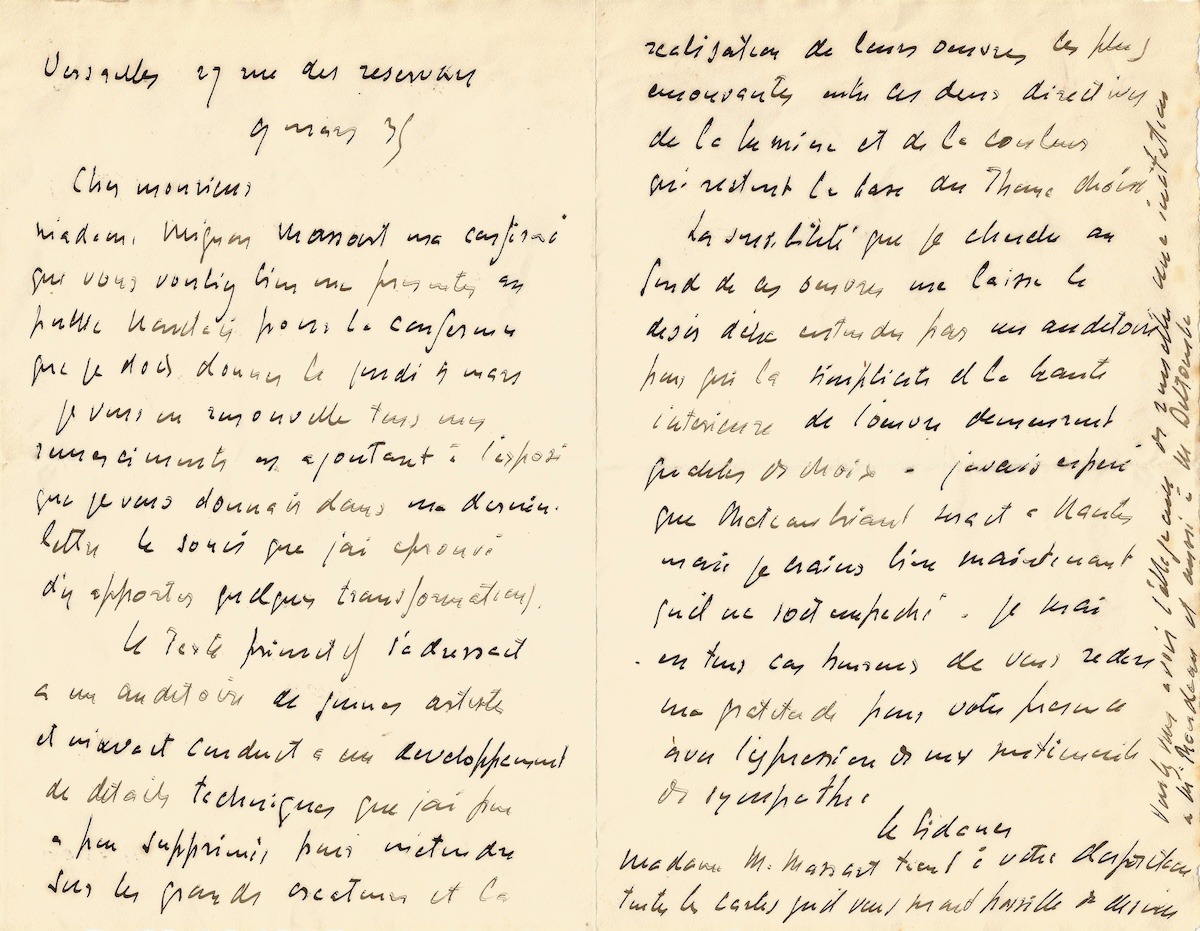 Versailles 27 rue des reservoirs
9 mars 35
Cher monsieur
madame Mignon Massart ma confirmé
que vous vouliez bien me presenter au
public Nantais pour la conference
que je dois donner le jeudi mars
je vous en renouvelle tous mes
remerciments en ajoutant à l'exposé
que je vous donnais dans ma derniere
lettre le souci que jai eprouvé
d'y apporter quelques transformations.
Le texte primitif s'adressait
a un auditoire de jeunes artistes
et m'avait conduit a un developpement
de détails techniques que jai peu
a peu supprimés pour m'etendre
sur les grands createurs et la
realisation de leurs oeuvres les plus
emouvantes entre ces deux directives
de la lumiere et de la couleur
qui restent la base du Theme choisi
La sensibilité que je cherche au
fond de ces oeuvres me laisse le
desir d'être entendu par un auditoire
pour qui la simplicité et la beauté
interieure de l'oeuvre demeurent
qualités de choix - javais espéré
que Chateaubriant serait a Nantes
mais je crains bien maintenant
quil ne soit empeché. je serai
en tous cas heureux de vous redire
ma gratitude pour votre presence
avec l'expression de mes sentiments
de sympathie
Le Sidaner
madame M. Massart tient à votre disposition
toutes les cartes quil vous serait possible de desirer
Voulez vous avoir l'obligeance de remettre une invitation
a Mr. et aussi à Mr